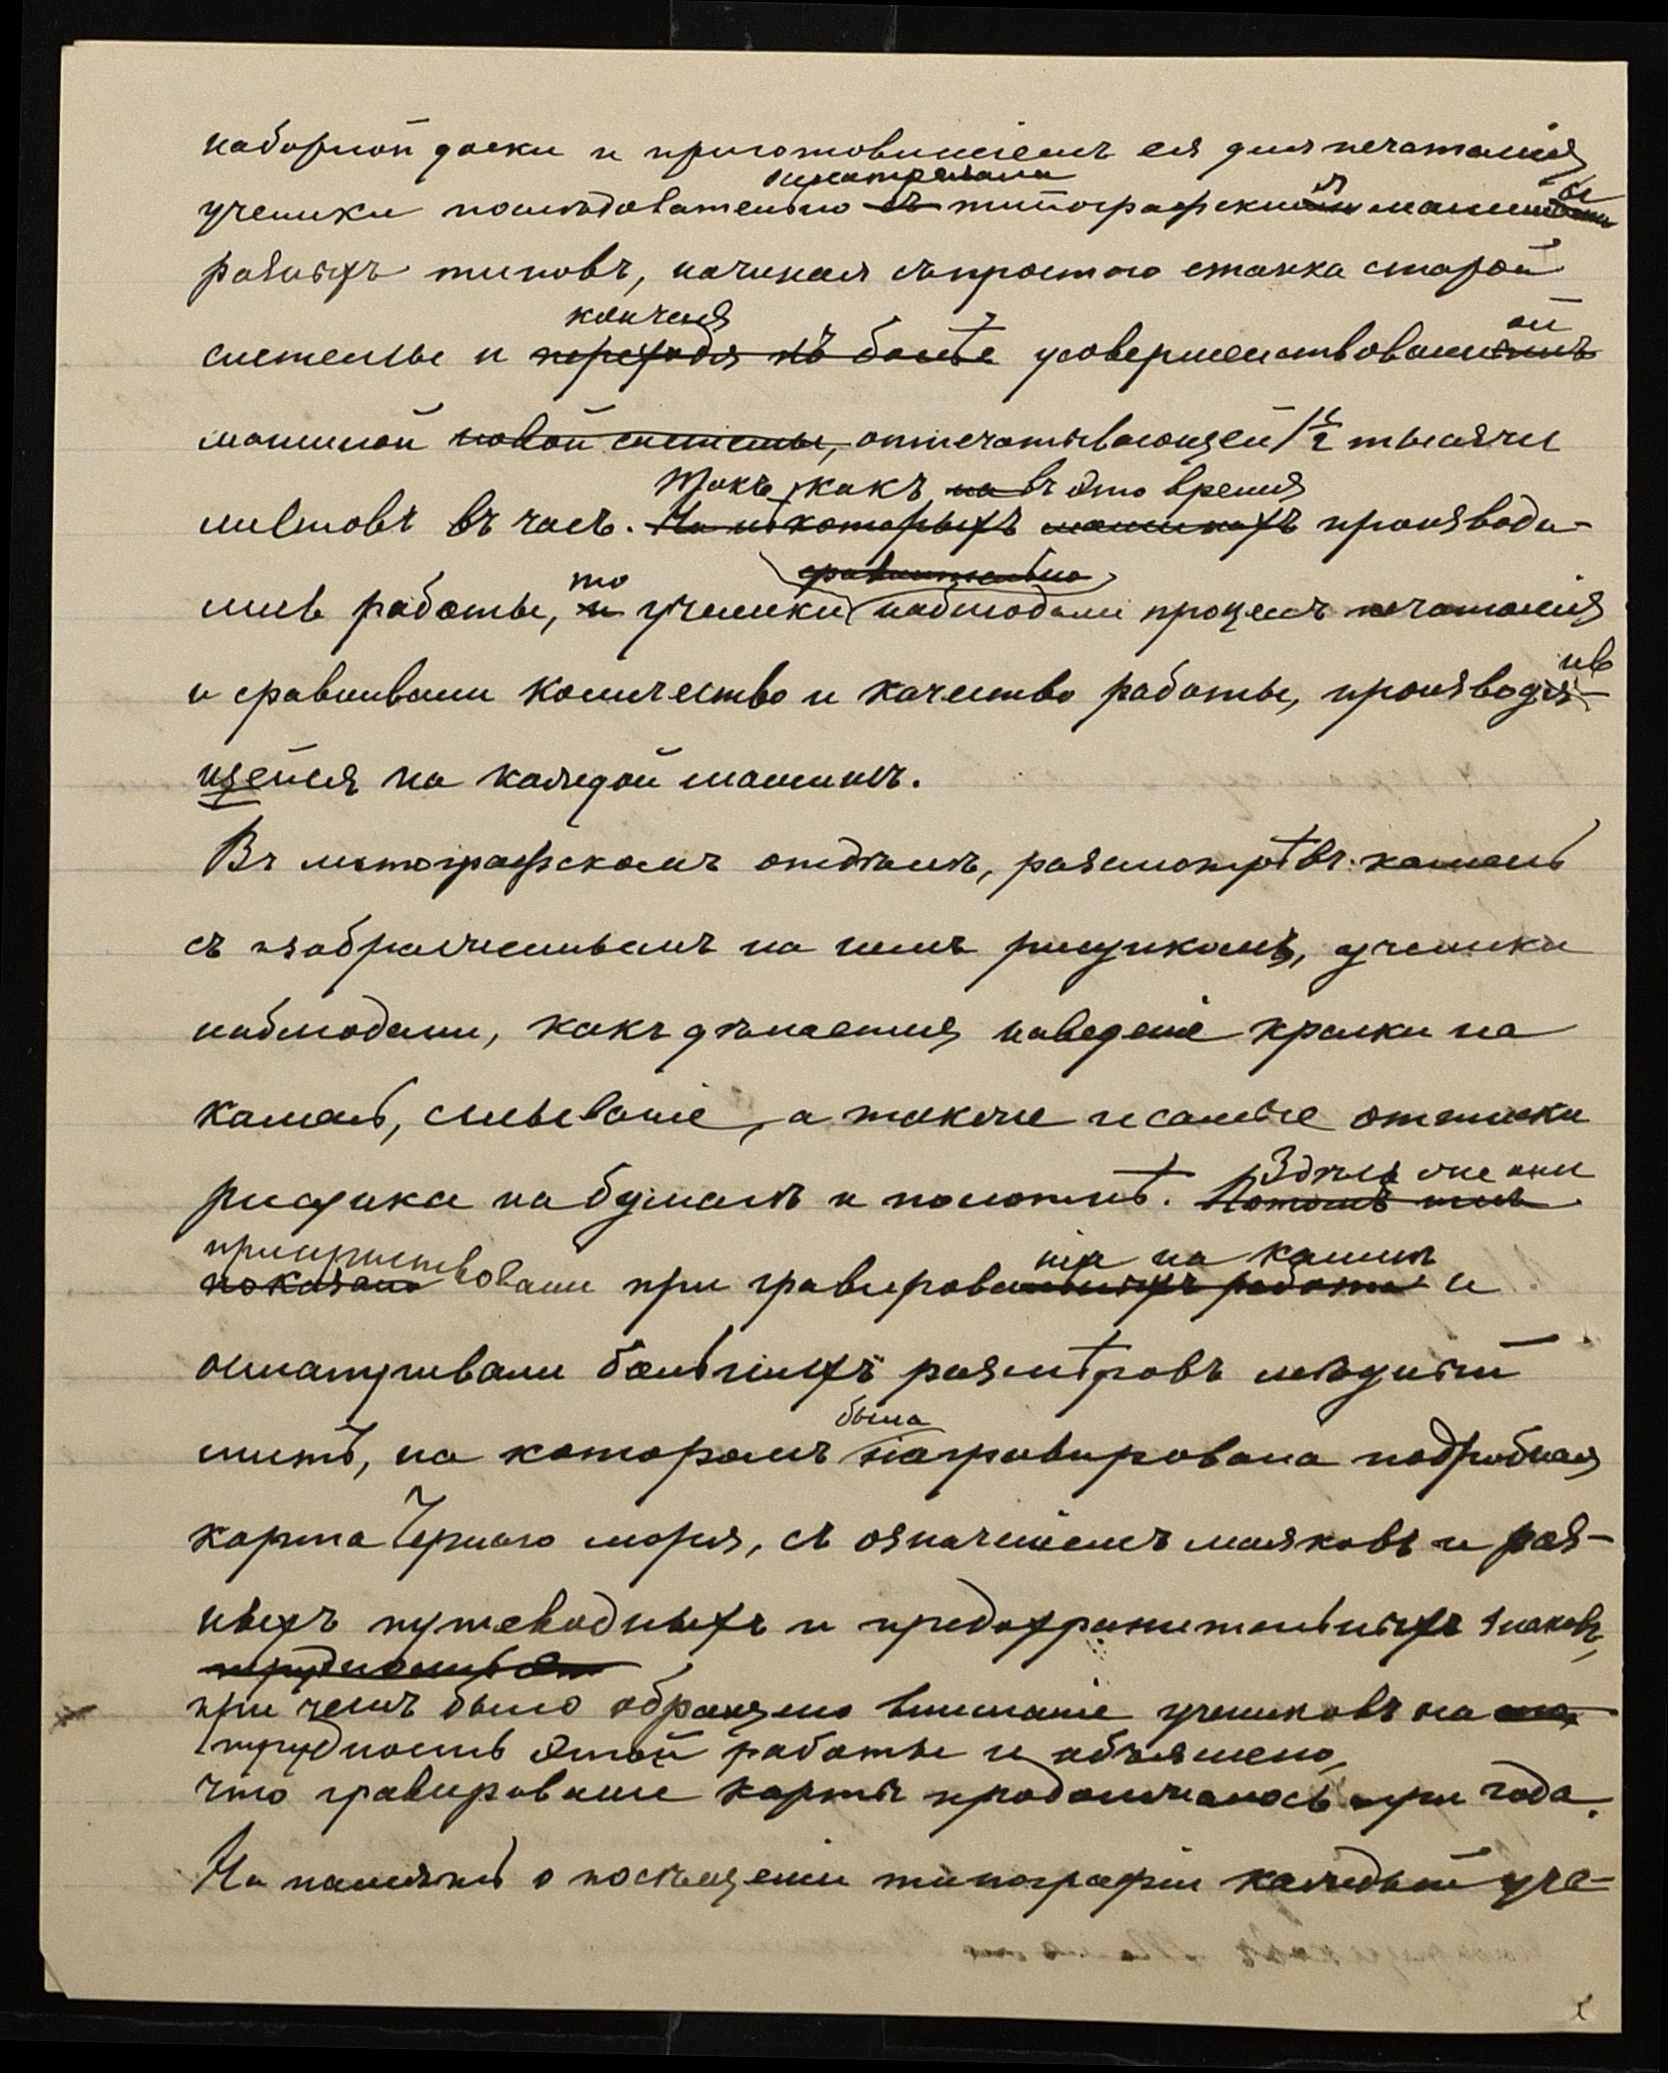 наборной доски и приготовленіемъ ея для печатанія
осматривали
ученики послѣдовательно съ типографскія машины
разныхъ типовъ, начиная съ простого станка старой
кончая
системы и переходя къ болѣе усовершенствованной
машиной новой системы, отпечатывающей 1½ тысячи
Такъ какъ въ это время
листовъ въ часъ. На нѣкоторыхъ машинахъ производи-
то сравнительно
лись работы, и ученики наблюдали процессъ печатанія
и сравнивали количество и качество работы, производив-
щейся на каждой машинѣ.
Въ литографскомъ отдѣлѣ, разсмотрѣвъ камень
съ изображеннымъ на немъ рисункомъ, ученики
наблюдали, какъ дѣлается наведеніе краски на
камень, смываніе, а также и самые оттиски
Здѣсь же они
рисунка на бумагѣ и полотнѣ. Потомъ имъ
присутствовали при гравированія на камнѣ и
показано
осматривали большихъ размѣровъ мѣдный
была
листъ, на которомъ награвирована подробная
карта Чернаго моря, съ означеніемъ маяковъ и раз-
ныхъ путеводныхъ и предохранительныхъ знаковъ,
трудность эт
при чемъ было обращено вниманіе учениковъ на
трудность этой работы и объяснено,
что гравированіе карты продолжалось три года.
На память о посѣщеніи типографіи каждый уче-